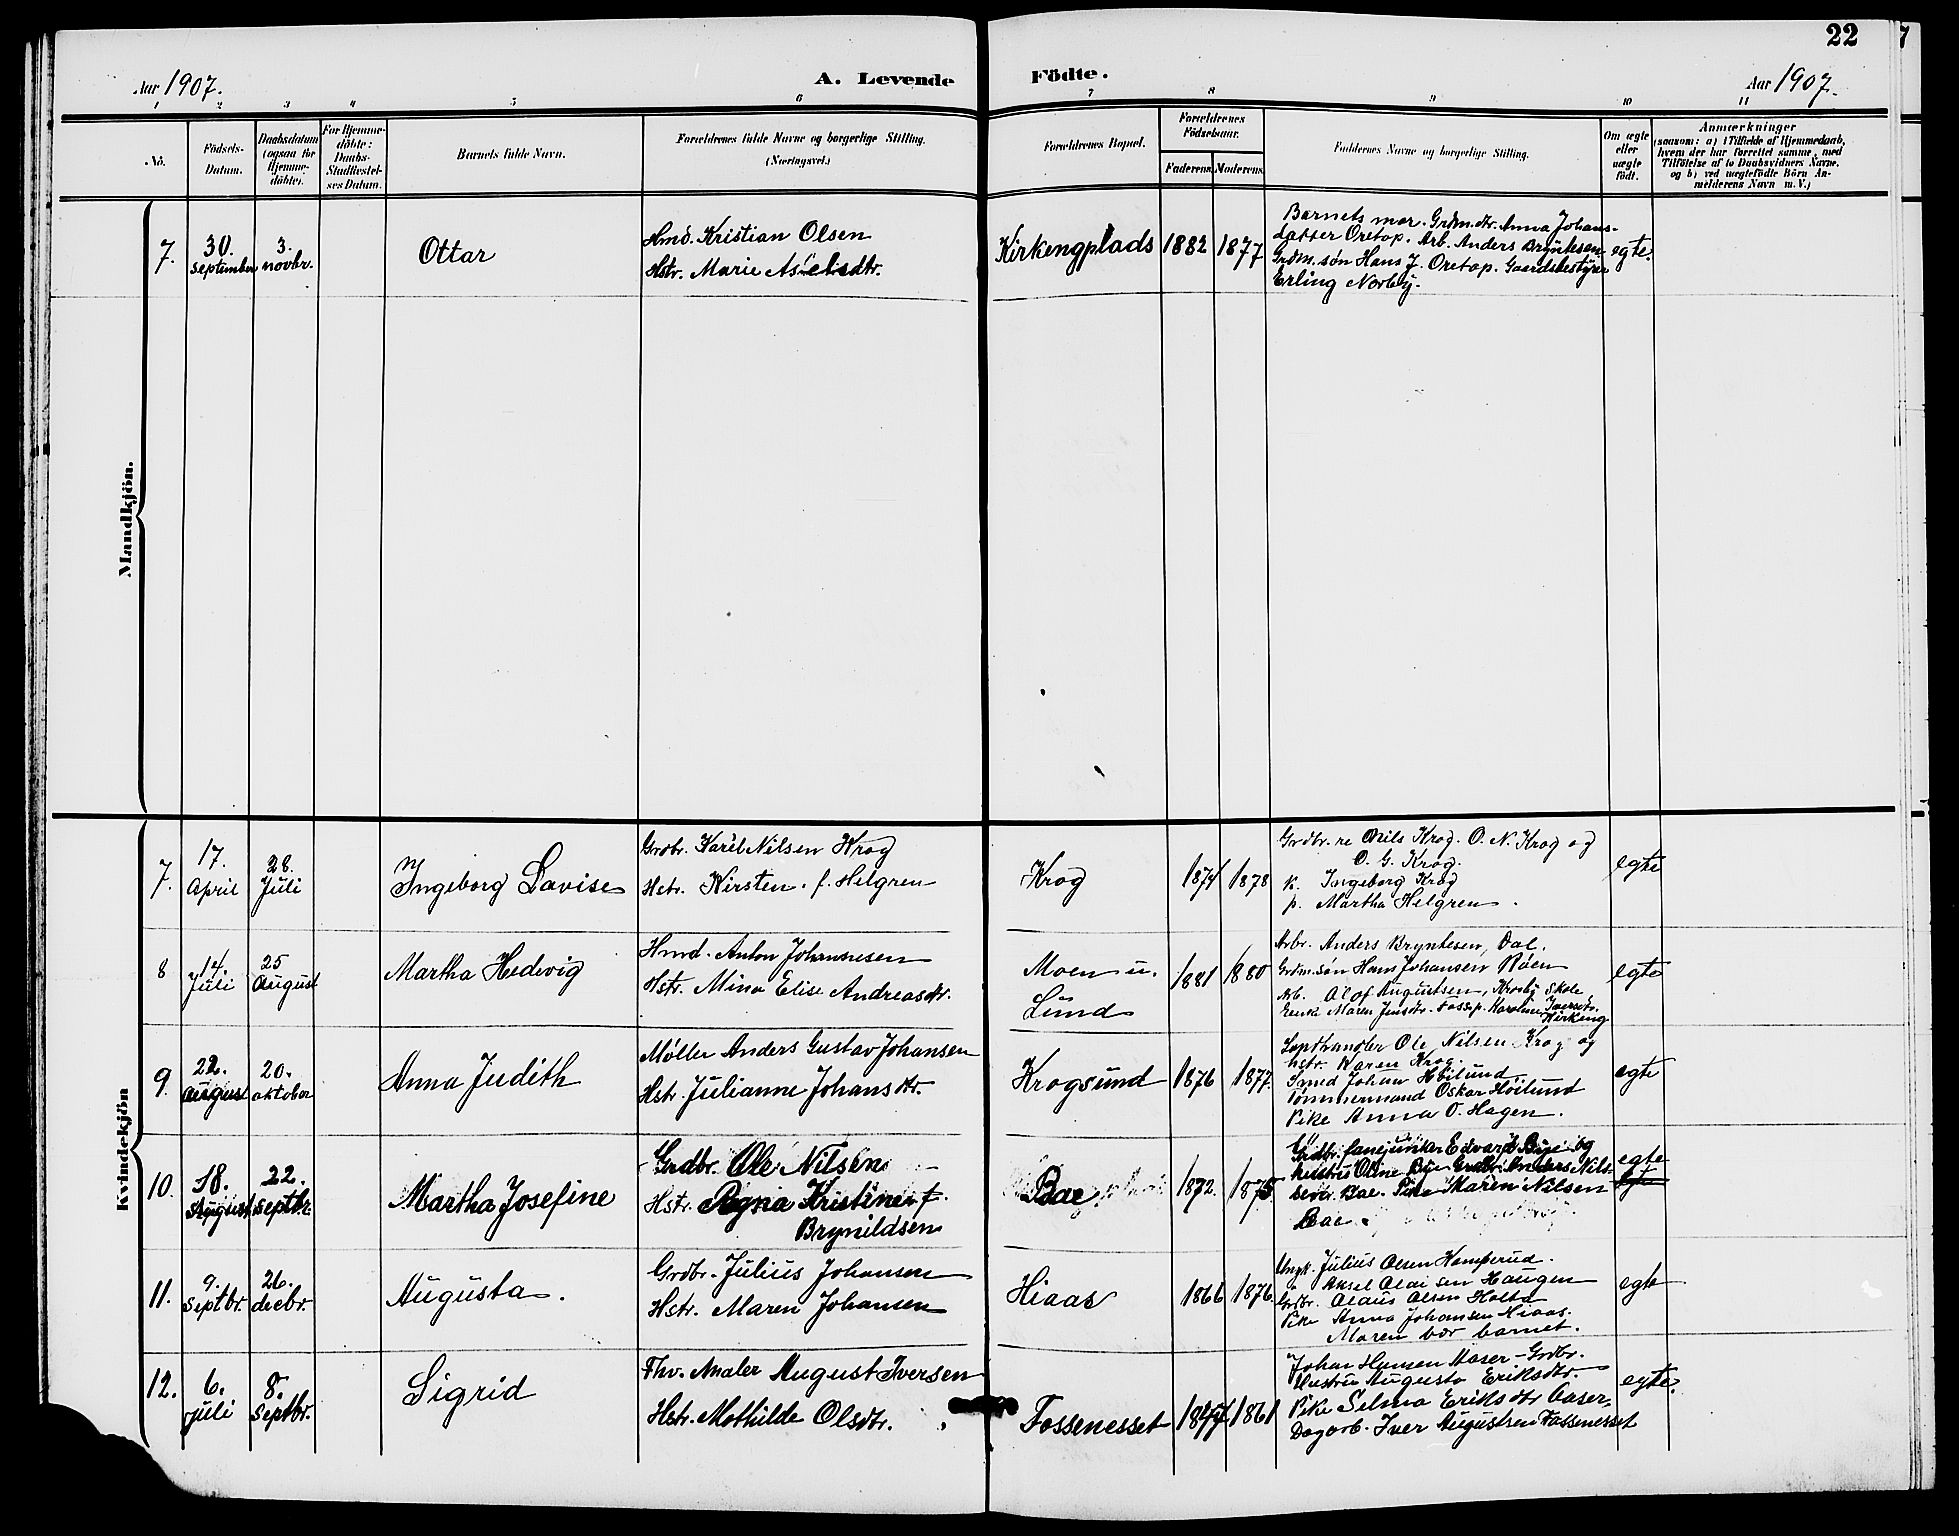 22
Aar 1907.
A. Levende Födte.
Aar 1907.
1 2 3 4 5 6 7 8 9 10 11
No.
Födsels-
Datum.
Daabsdatum
(ogsaa for
Hjemme-
döbte).
For Hjemme-
döbte:
Daabs-
Stadfæstel-
ses Datum.
Barnets fulde Navn.
Forældrenes fulde Navne og borgerlige Stilling.
(Næringsvei.)
Forældrenes Bopæl.
Forældrenes
Födselsaar.
Faderens. Moderens.
Faddernes Navne og borgerlige Stilling.
Om ægte
eller
uægte
födt.
Anmærkninger
(saasom: a) i Tilfælde af Hjemmedaab,
hvem der har forrettet samme, med
Tilföielse af to Daabsvidners Navne.
og b) ved uægtefödte Börn An-
melderens Navn m. V.)
Mandkjön.
7.
30.
September
3.
novbr.
Ottar
Hmd. Kristian Olsen
Hstr. Marie Aslaksdtr.
Kirkengplads
1882
1877
Barnets mor. Grdm.dtr. Anna Johans-
datter Oretop. Arb. Anders Bryntesen
Grdm. søn Hans J. Oretop. Gaardsbestyrer
Erling Norby.
egte.
Kvindekjön
7.
17.
April
28.
Juli
Ingeborg Lavise
Grdbr. Karèl Nilsen Krog
Hstr. Kirsten f. Helgren
Krog
1874
1878
Grdbr.re Nils Krog. O. N. Krog og
O. G. Krog.
K. Ingeborg Krog
p. Martha Helgren.
egte
8
14.
Juli
25
August
Martha Hedvig
Hmd. Anton Johannesen
Hstr. Mina Elise Andreasdtr.
Moen u.
Lund
1881
1880
Arbr. Anders Bryntesen, Dal.
Grdm.søn Hans Johansen Röen
Arb. Olof Augustsen, Krosby Skole
Enke Maren Jensdtr. Foss, p. Karoline Iversdtr.
Kirkeng
egte
9.
22.
August
20.
oktober
Anna Judith
Møller Anders Gustav Johansen
Hstr. Julianne Johansdtr.
Krogsund
1876
1877.
Ole Nilsen Krog og
hstr. Karen Krog.
Smed Johan Höilund
Tömmermand Oskar Höilund
Pike Anna O. Hagen.
egte
10.
18.
August
22.
Septbr.
Martha Josefine
Grdbr. Ole Nilsen
Hstr. Agna Kristine f.
Brynildsen
Bae
1872.
1875
Grdbr. Edvard Bye og
hustru Oline Bye Grdbr. Anders Nils-
sen Bae. Pike Maren Nilsen
Bae
egte
11.
9.
Septbr.
26.
decbr.
Augusta.
Grdbr. Julius Johansen
Hstr. Maren Johansen
Hiaas
1866
1876.
Ungk. Julius Olsen Hemperud.
Aksel Olaisen Haugen
Grdbr. Olaus Olsen Holta
Pike Anna Johansen Hiaas.
Maren bar barnet.
egte
12.
6.
Juli
8.
Septbr.
Sigrid
Fhv. Maler August Iversen
Hstr. Mathilde Olsdtr.
Fossenesset
1861
Johan Hansen Aaser - Grdbr.
Hustru Augusta Eriksdtr.
Pike Selma Eriksdtr Aaser,
Dagarb. Iver Augustsen Fossenesset
egte.